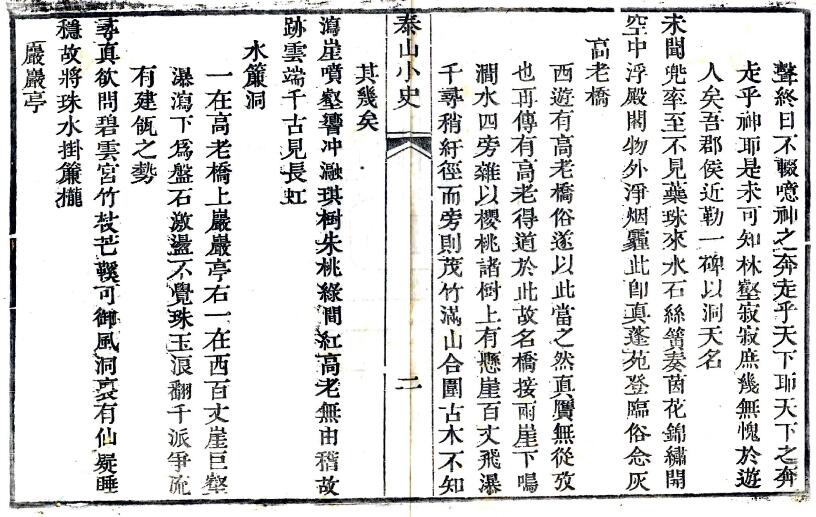 聲終日不輟噫神之奔走乎天下耶天下之奔
走乎神耶是未可知林壑寂寂庶幾無愧於遊
人矣吾郡侯近勒一碑以洞天名
未聞兜率至不見蘂珠來水石絲簧奏茵花錦繡開
空中浮殿閣物外淨烟霾此卽真蓬苑登臨俗念灰
高老橋
西遊有高老橋俗遂以此當之然真贋無從攷
也再傳有高老得道於此故名橋接兩崖下鳴
澗水四旁雜以櫻桃諸樹上有懸崖百丈飛瀑
千尋稍紆徑而旁則茂竹滿山合圍古木不知
泰山小史
二
其幾矣
瀉崖噴壑響冲瀜琪樹朱桃綠間紅高老無由稽故
跡雲端千古見長虹
水簾洞
一在高老橋上巖巖亭右一在西百丈崖巨壑
瀑瀉下爲盤石激盪不覺珠玉浪翻千派爭流
有建瓴之勢
尋真欲問碧雲宮竹杖芒鞵可御風洞裏有仙疑睡
穩故將珠水掛簾櫳
巖巖亭